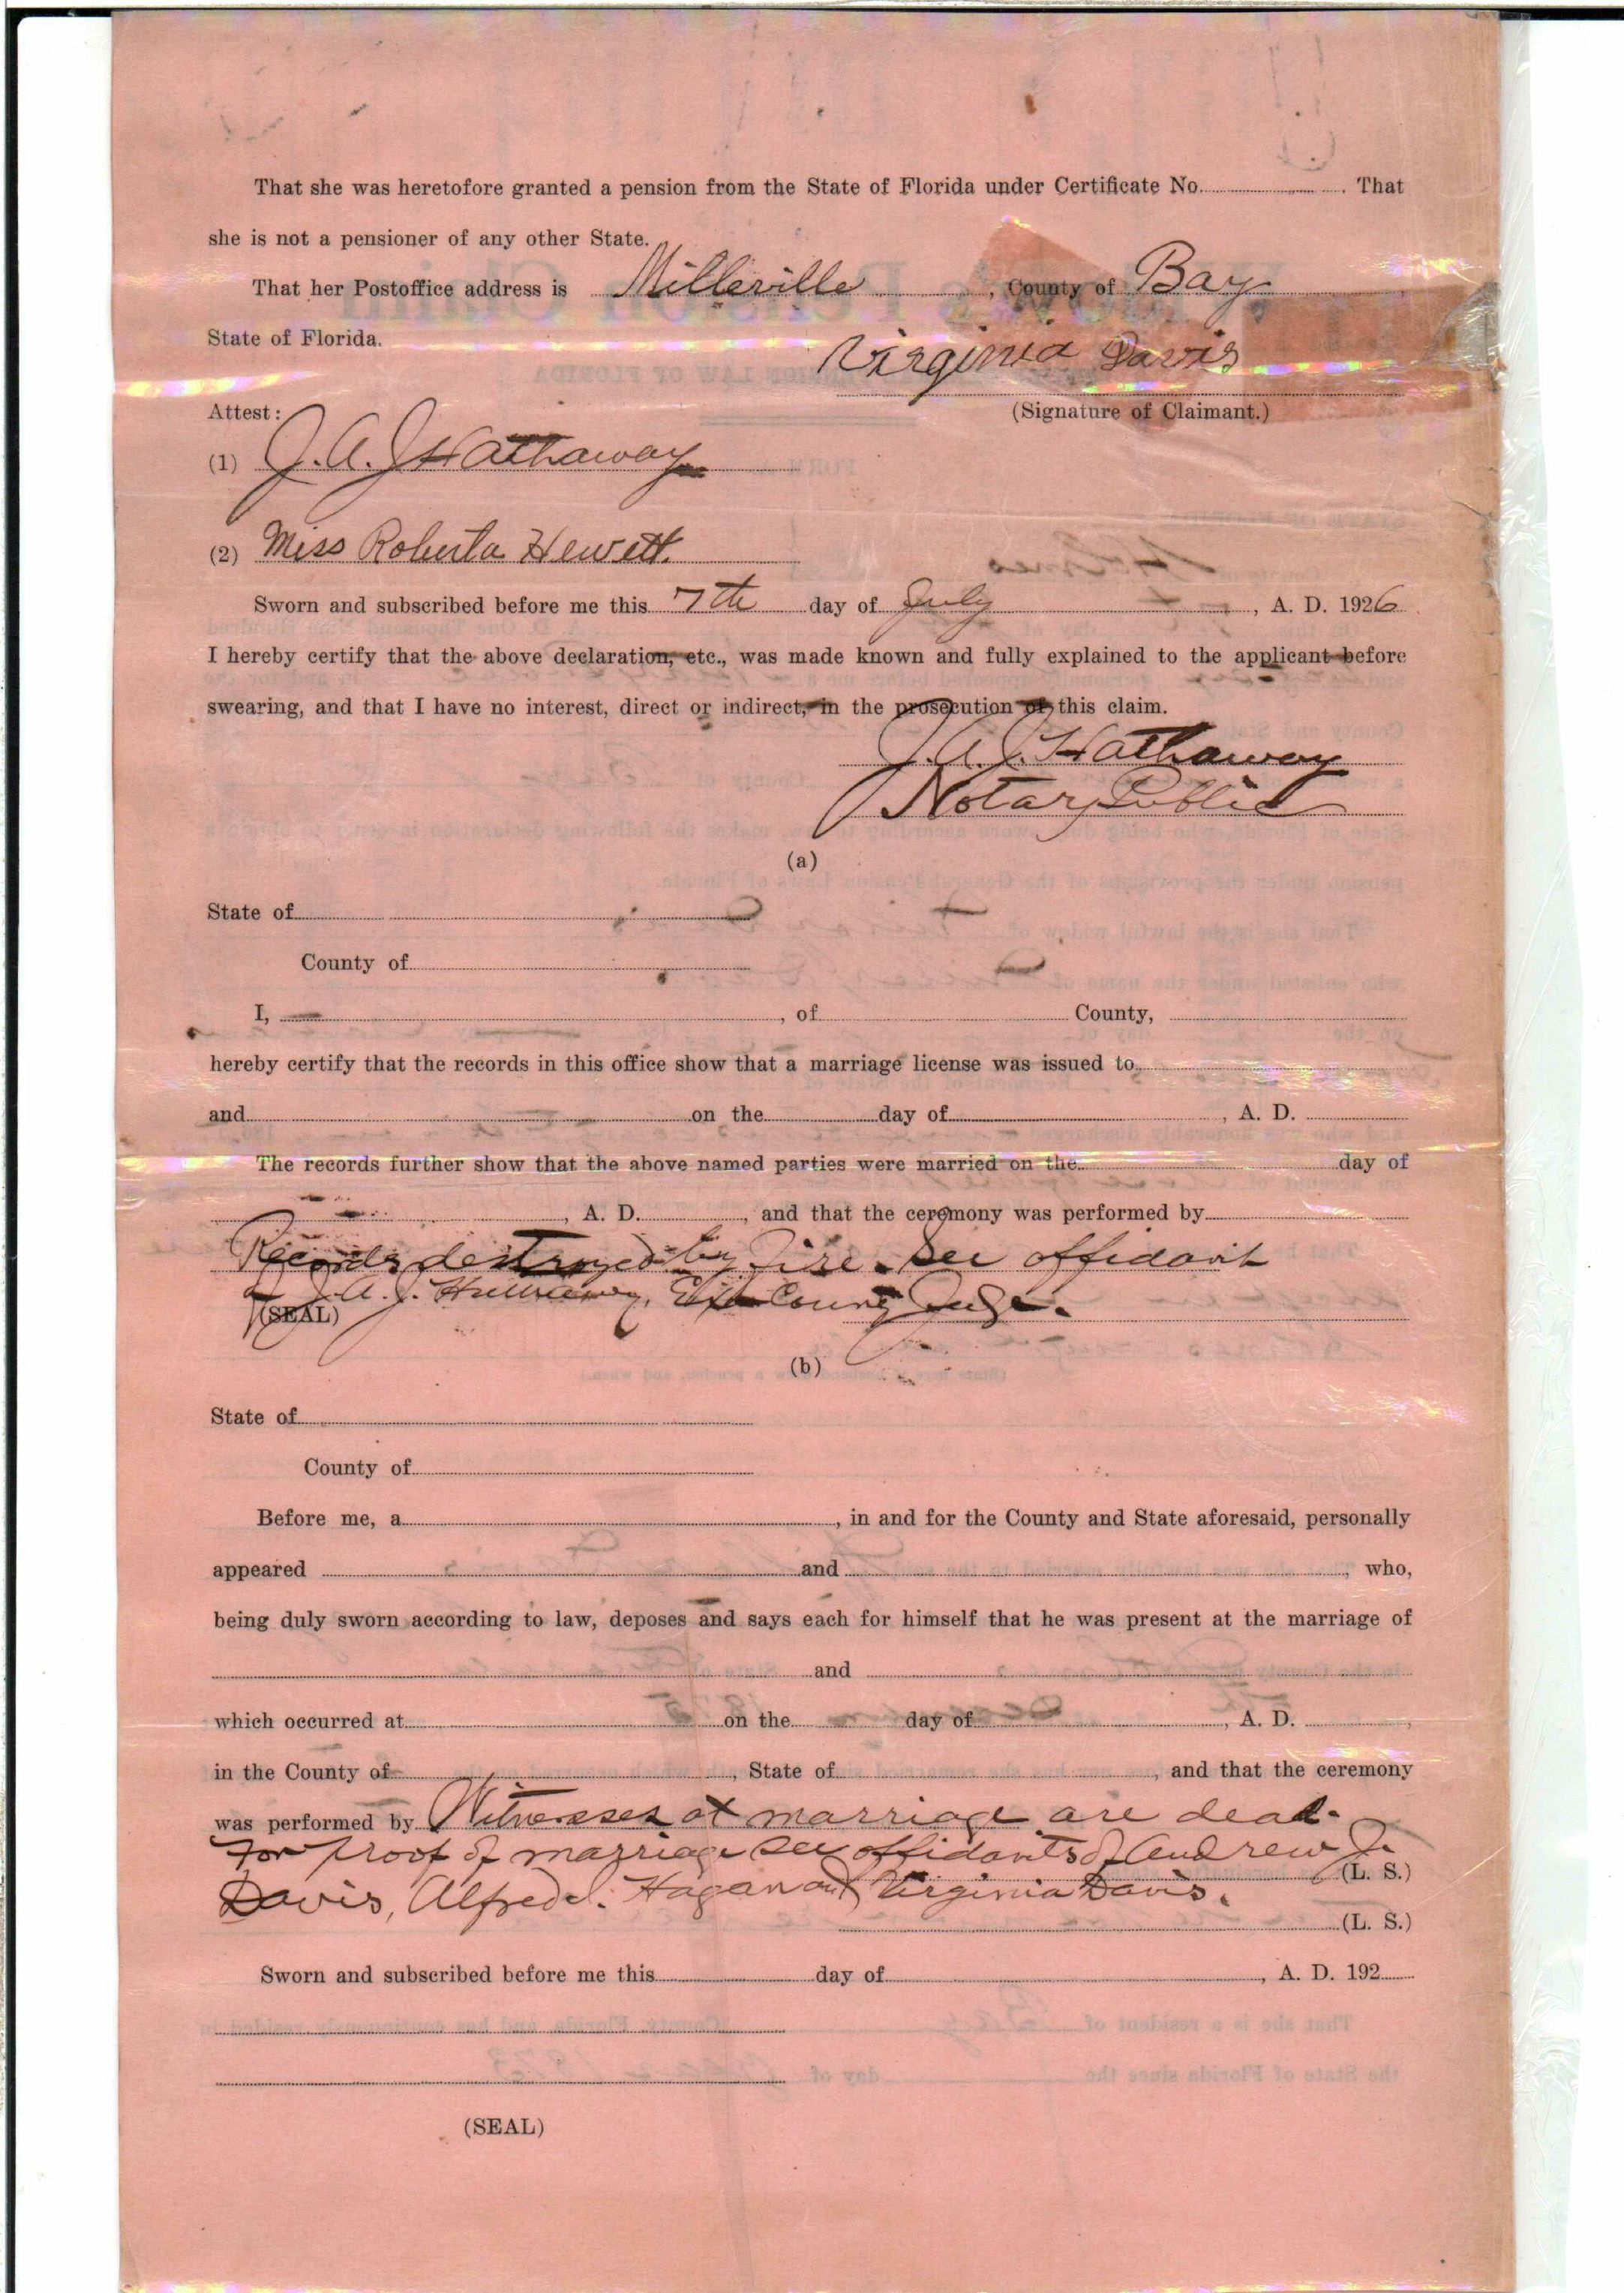 That she was heretofore granted a pension from the State of Florida under Certificate No. . That
she is not a pensioner of any other State.
That her Postoffice address is Milleville, County of Bay
State of Florida.
Virginia Davis
Attest: (Signature of Claimant.)
(1) J. A. J. Hathaway
(2) Miss Roberta Hewett.
Sworn and subscribed before me this 7th day of July, A. D. 1926
I hereby certify that the above declaration, etc., was made known and fully explained to the applicant before
swearing, and that I have no interest, direct or indirect, in the prosecution of this claim.
J. A. J. Hathaway
Notary Public
(a)
State of
County of
I, , of County,
hereby certify that the records in this office show that a marriage license was issued to
and on the day of , A. D.
The records further show that the above named parties were married on the day of
, A. D. , and that the ceremony was performed by
Records destroyed by Fire. See affidavit
of J. A. J. Hathaway, Ex County Judge.
(SEAL)
(b)
State of
County of
Before me, a , in and for the County and State aforesaid, personally
appeared and , who,
being duly sworn according to law, deposes and says each for himself that he was present at the marriage of
and
which occurred at on the day of , A. D. ,
in the County of , State of , and that the ceremony
was performed by Witnesses at marriage are dead.
For proof of marriage see affidavits of Andrew J.
(L. S.)
Davis, Alfred J. Hagan and Virginia Davis.
(L. S.)
Sworn and subscribed before me this day of , A. D. 192
(SEAL)